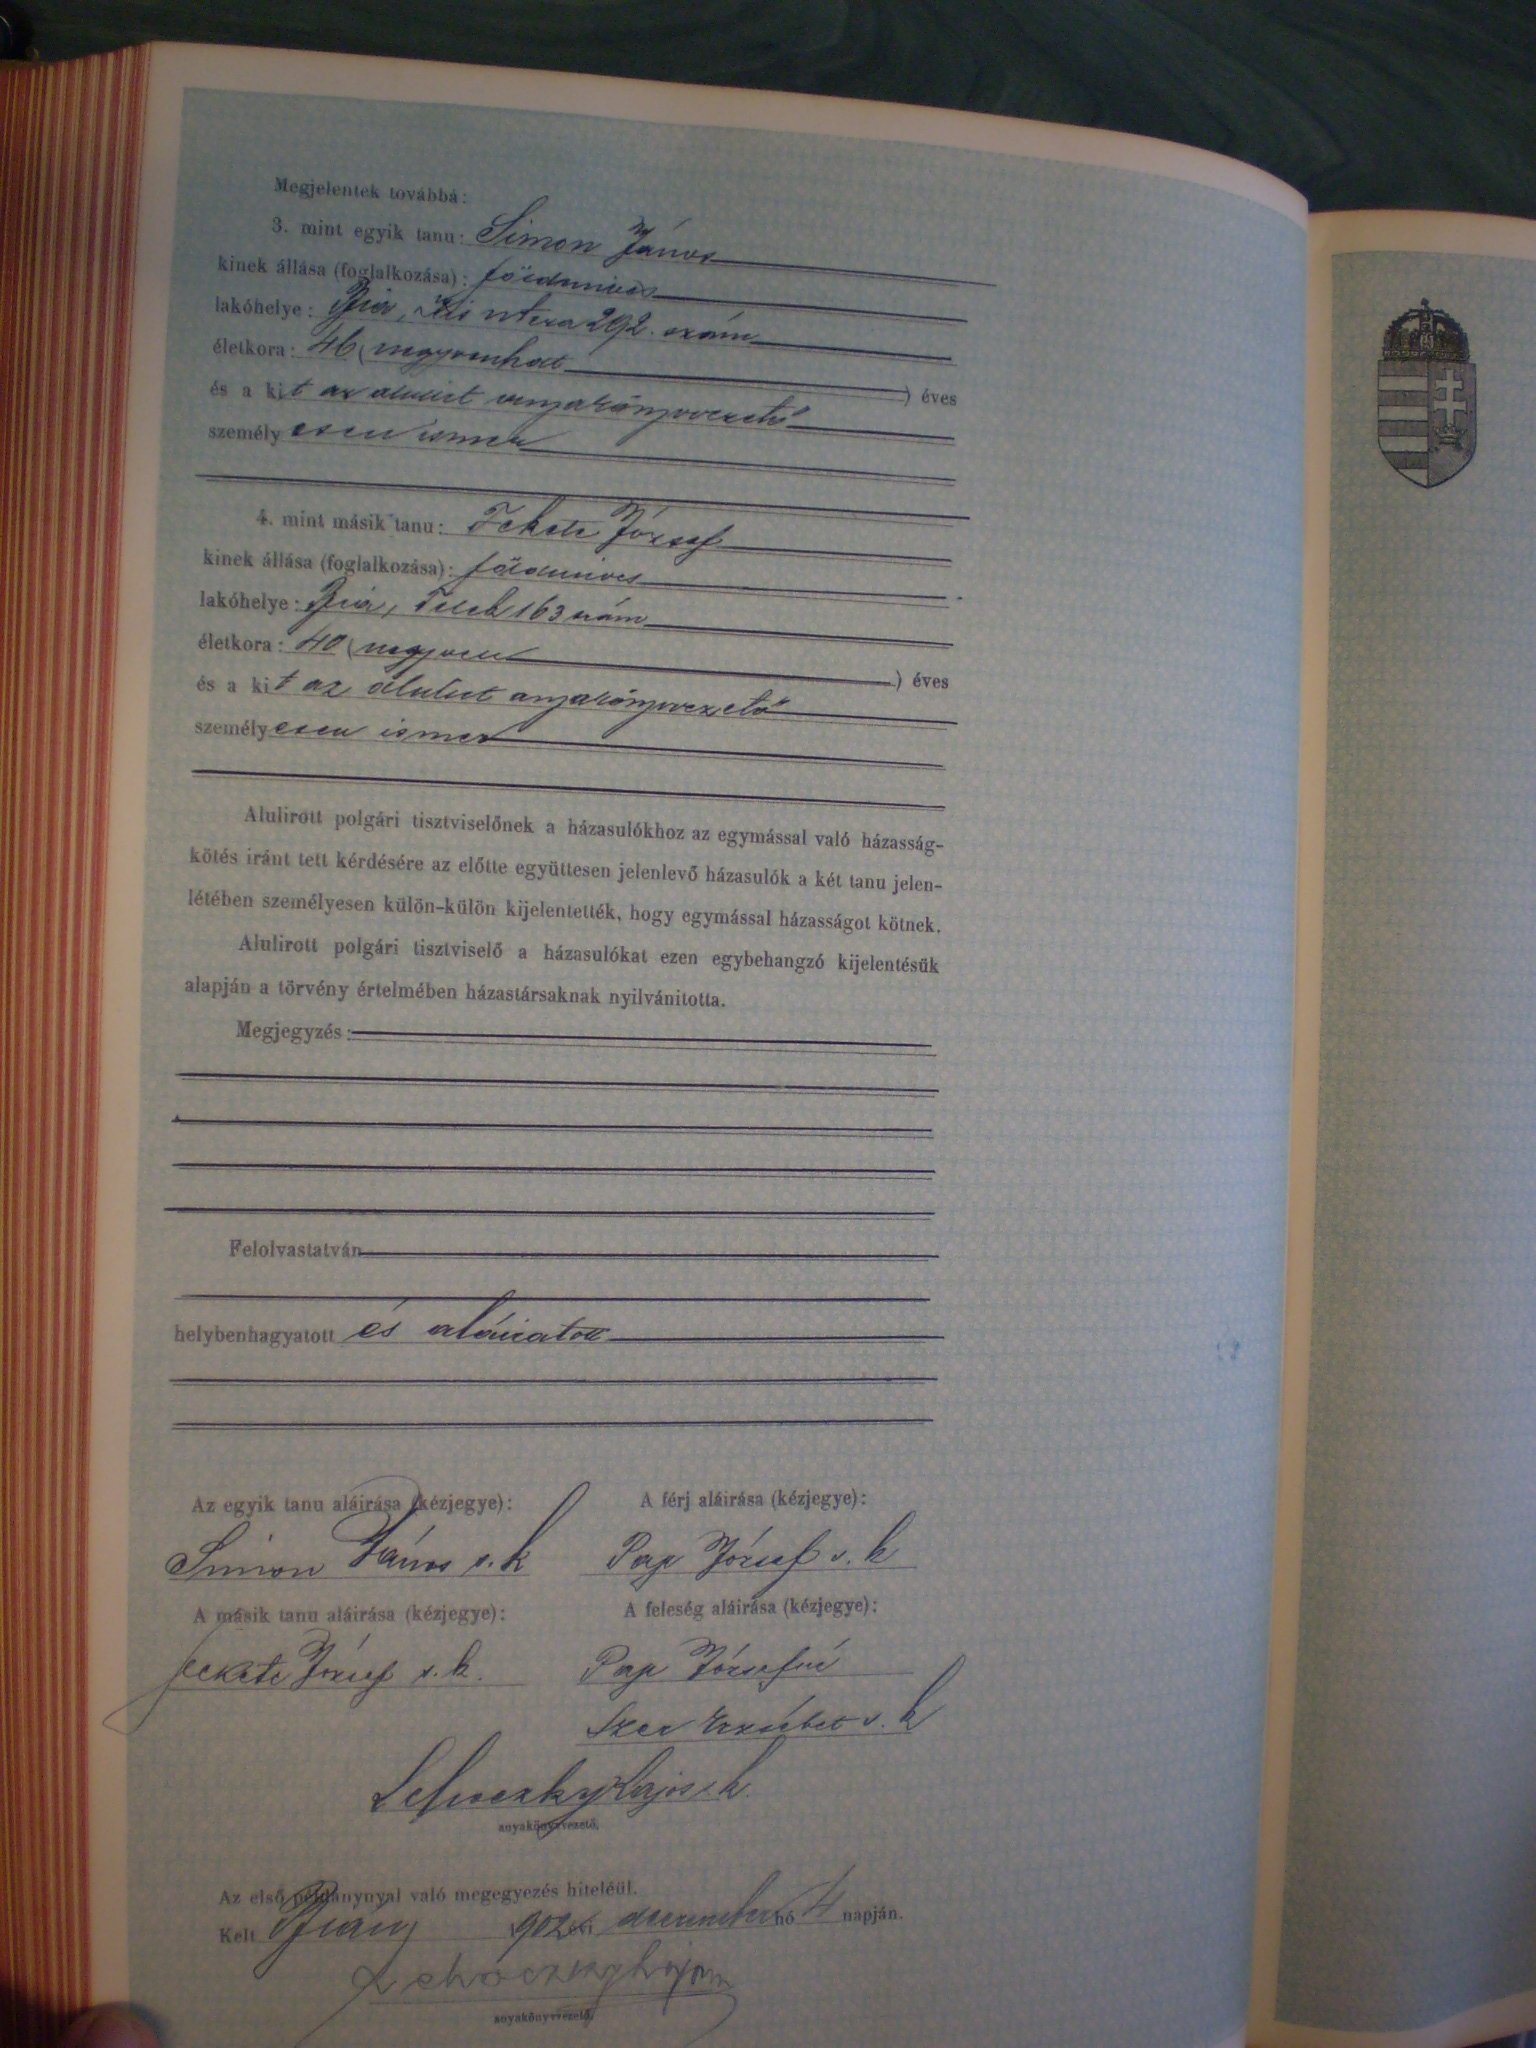 Megjelentek továbbá:
3. mint egyik tanu: Simon János
kinek állása (foglalkozása): földmives
lakóhelye: Bia, Kis utcza 292. szám
életkora: 46 (negyvenhat) éves
és a kit az alulirt anyakönyvvezető
személyesen ismer
4. mint másik tanu: Fekete József
kinek állása (foglalkozása): földmives
lakóhelye: Bia, Telek 163 szám
életkora: 40 (negyven) éves
és a kit az alulirt anyakönyvvezető
személyesen ismer
Alulirott polgári tisztviselőnek a házasulókhoz az egymással való házasság-
kötés iránt tett kérdésére az előtte együttesen jelenlevő házasulók a két tanu jelen-
létében személyesen külön-külön kijelentették, hogy egymással házasságot kötnek.
Alulirott polgári tisztviselő a házasulókat ezen egybehangzó kijelentésük
alapján a törvény értelmében házastársaknak nyilvánitotta.
Megjegyzés:
Felolvastatván
helybenhagyatott és aláiratott
Az egyik tanu aláirása (kézjegye): A férj aláirása (kézjegye):
Simon János s. k Pap József s. k
A másik tanu aláirása (kézjegye): A feleség aláirása (kézjegye):
Fekete József s. k. Pap Józsefné
Erzsébet s. k
Lehoczky Lajos s. k.
anyakönyvvezető.
Az első példánynyal való megegyezés hiteléül.
Kelt Bián, 1902 évi december hó 4 napján.
Lehoczky Lajos
anyakönyvvezető.